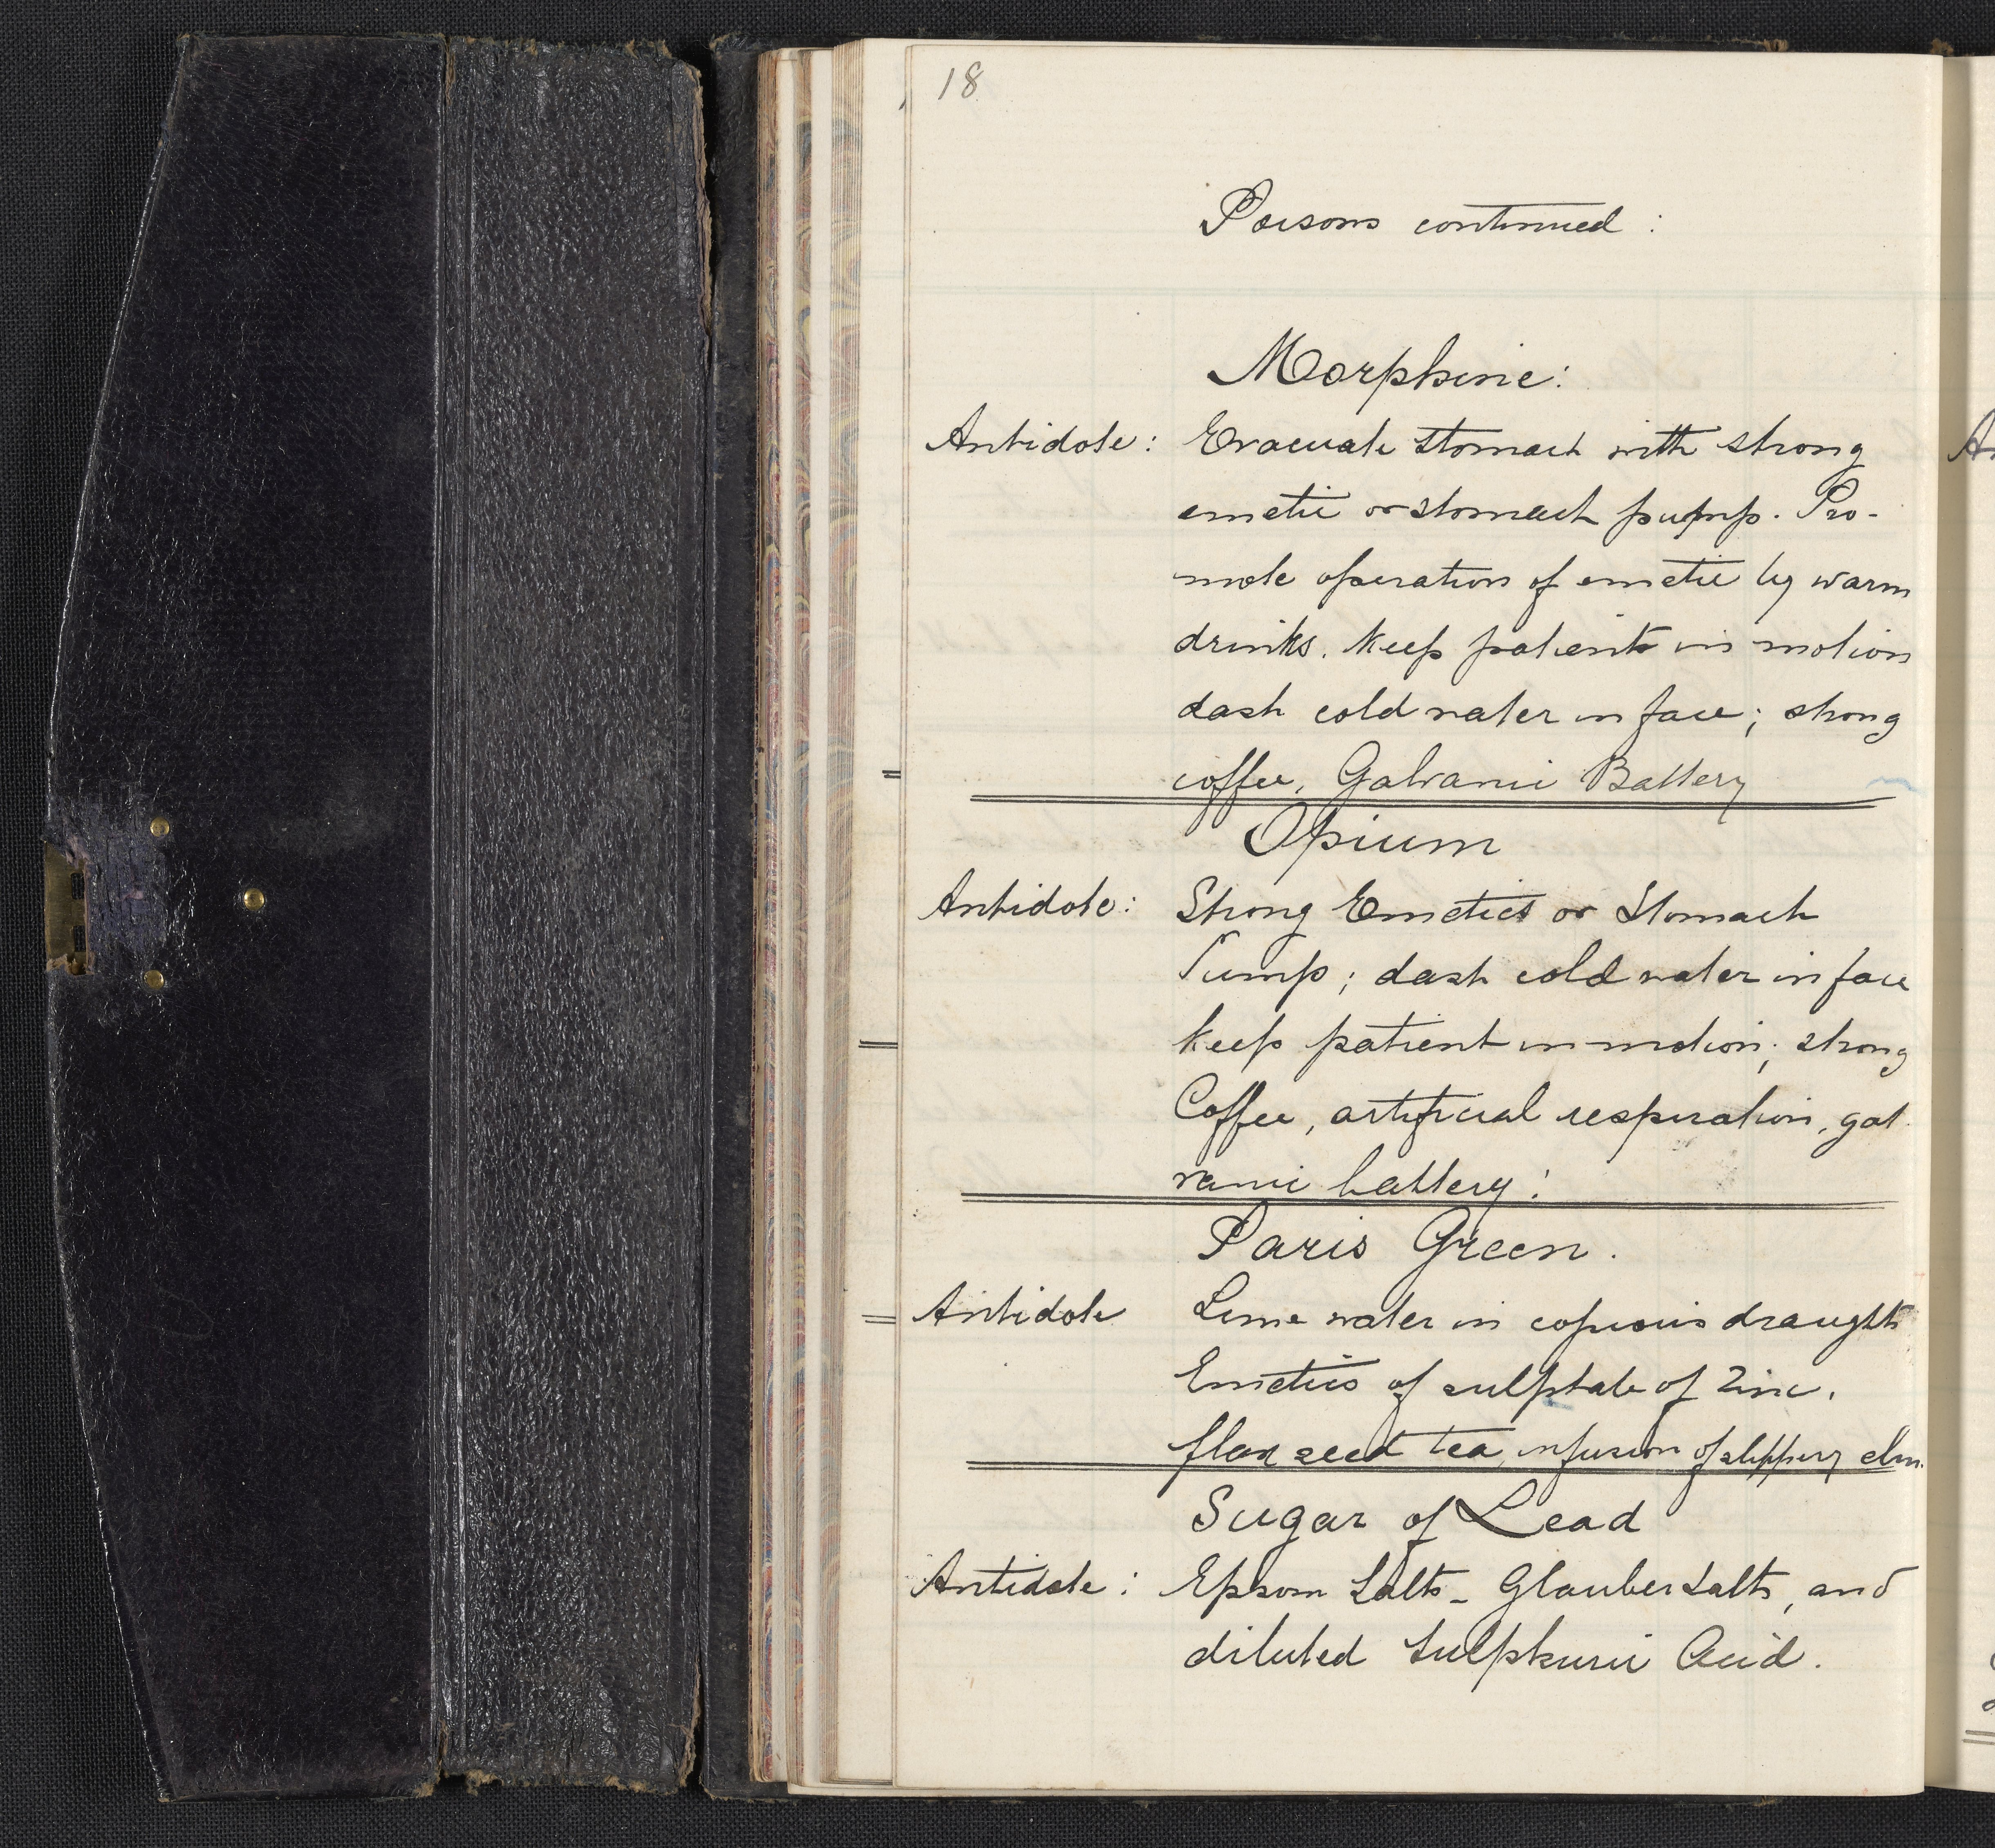 18
Poisons continued :
Morphine:
Antidote: Evacuate Stomach with strong
emetic or stomach pump. Pro-
mote operation of emetic by warm
drinks. Keep patient in motion
dash cold water in face; strong
coffee, Galvanic Battery
Opium
Antidote: Strong Emetics or Stomach
Pump; dash cold water in face
keep patient in motion; strong
Coffee, artificial respiration, gal
vanic battery!
Paris Green.
Antidote Lime water in copious draughts
Emetics of sulphate of Zinc.
flax seed tea, infusion of slippery elm.
Sugar of Lead
Antidote: Epsom Salts - Glauber Salts, and
diluted Sulphuric Acid.